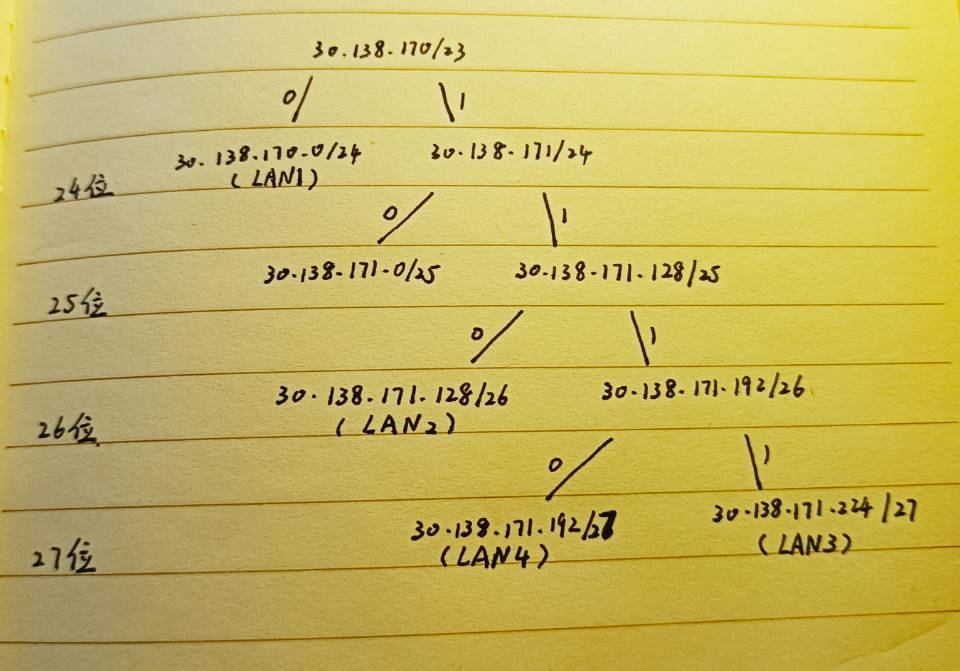 30.138.170/23
0 1
30.138.170.0/24 30.138.171/24
(LAN1)
24位
0 1
30.138.171.0/25 30.138.171.128/25
25位
0 1
30.138.171.128/26 30.138.171.192/26
(LAN2)
26位
0 1
30.138.171.192/27 30.138.171.224/27
(LAN4) (LAN3)
27位